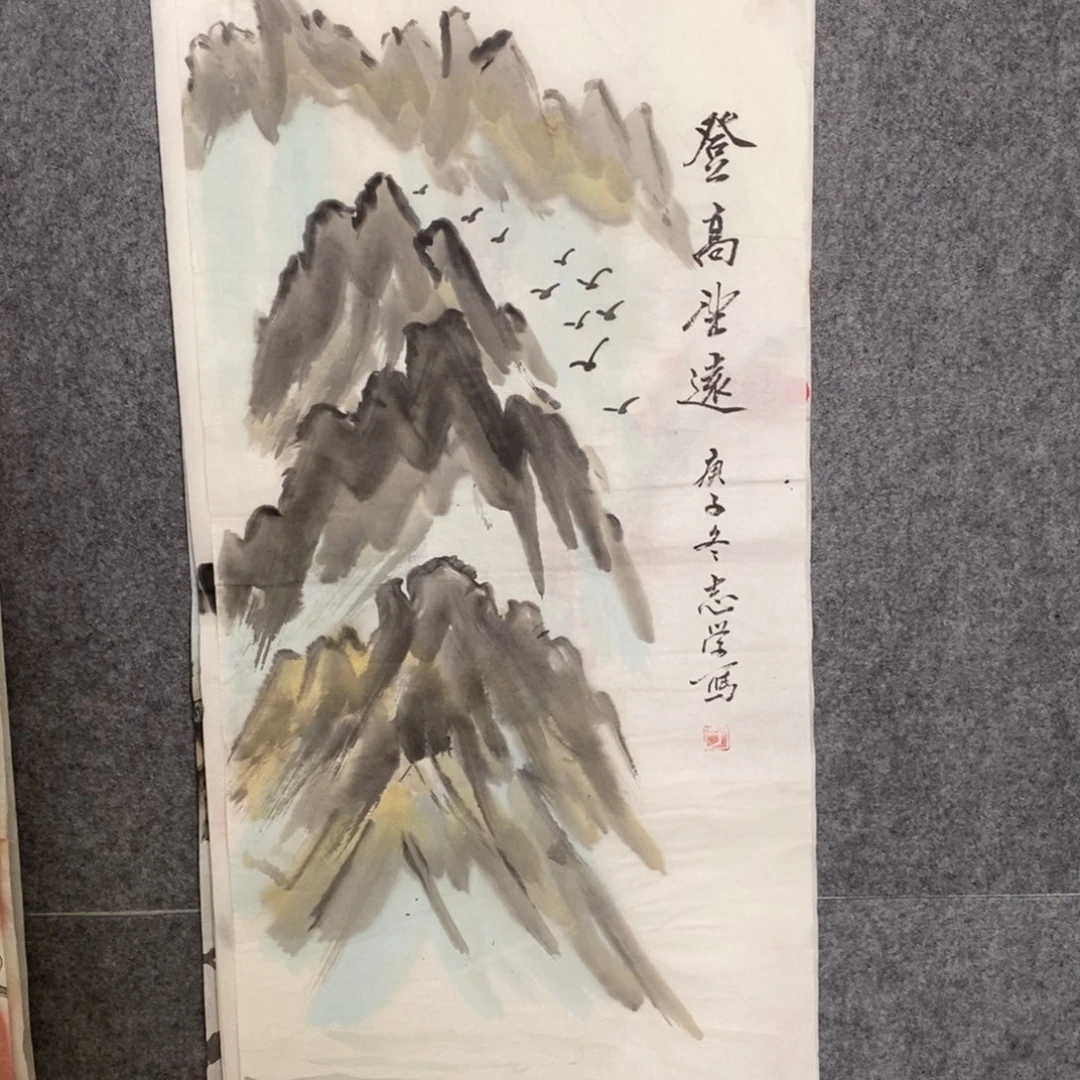 登高望遠
庚子冬志学写